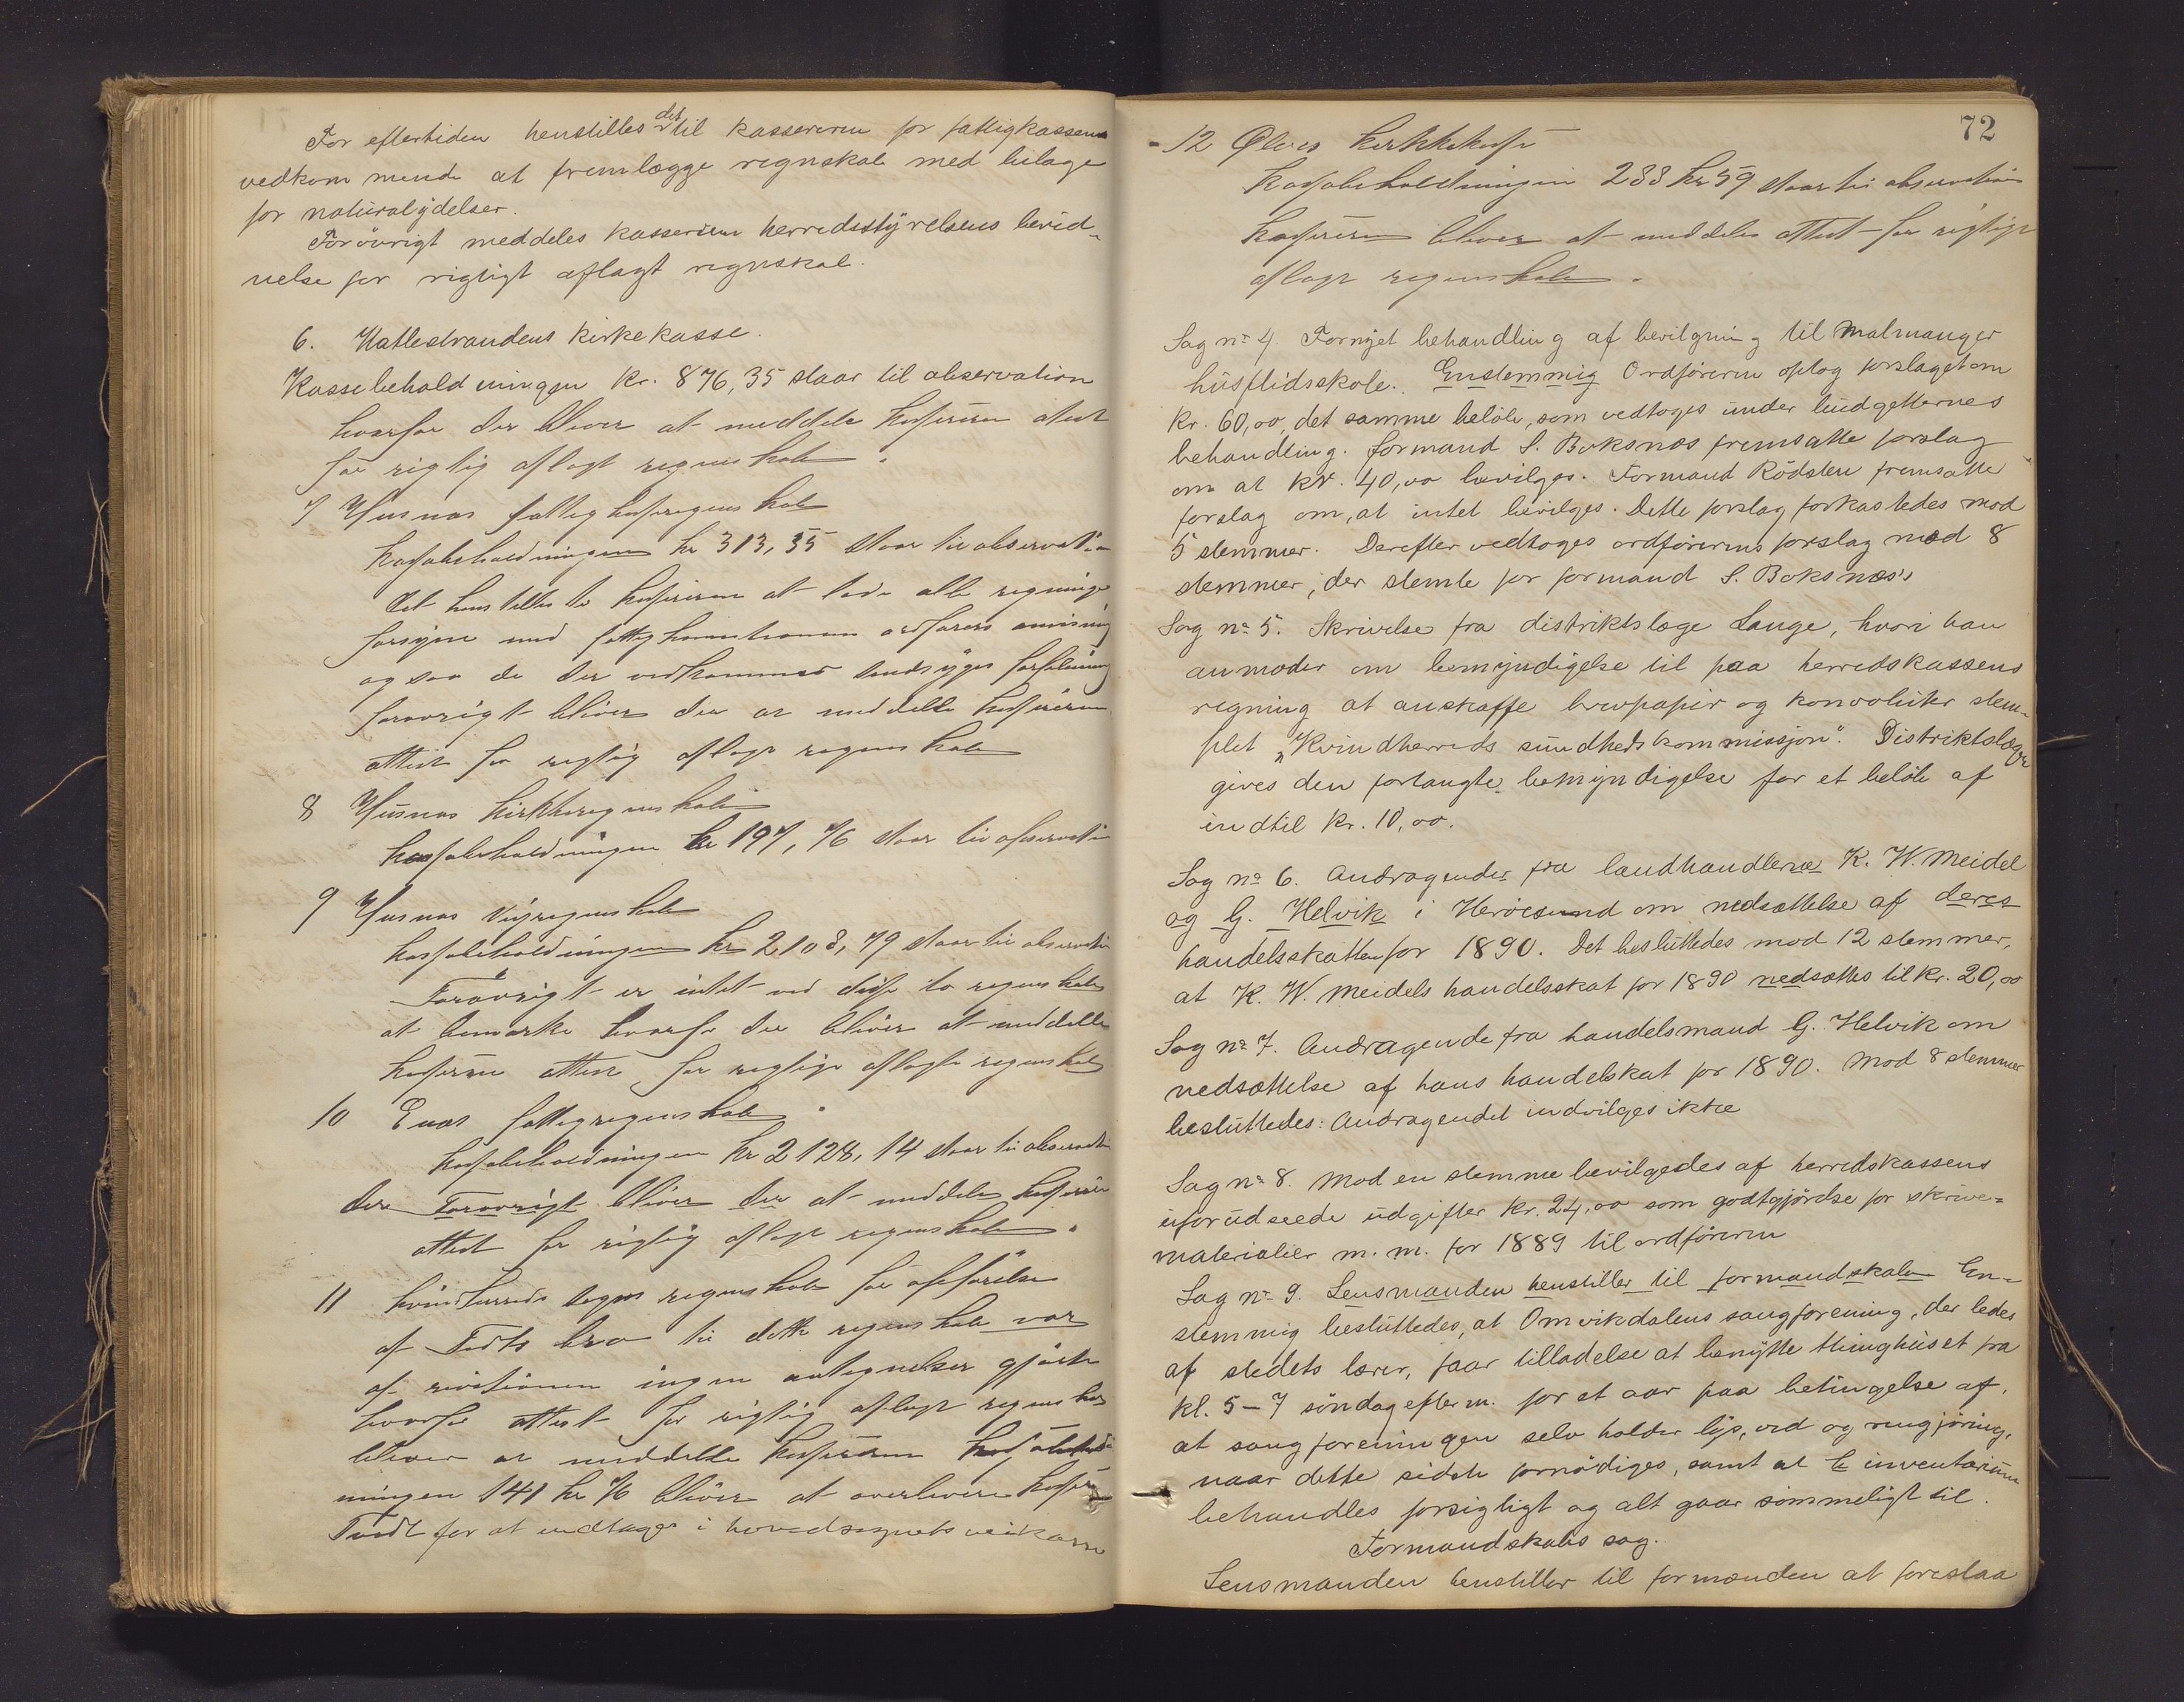 For eftertiden henstilles det til kassereren for fattigkassens
vedkommende at fremlægge regnskab med bilage
for naturalydelser.
Forøvrigt meddeles kassereren herredsstyrelsens bevid-
nelse for rigtigt aflagt regnskab.
6. Hatlestrandens kirkekasse.
Kassebeholdningen kr. 876,35 staar til observation
hvorfor der bliver at meddele kassereren attest
for rigtig aflagt regnskab.
7 Husnæs fattigkasseregnskab
Kassabeholdningen kr 313,35 staar til observation
det henstilles til kassereren at lade alle regninger
forsyne med fattigkommissionens ordførers anvisning
ogsaa de der vedkommer sindsyges forpleining
forøvrigt bliver der at meddele kassereren
attest for rigtig aflagt regnskab
8 Husnæs kirkeregnskab
kassabeholdningen kr 197,76 staar til observation
9 Husnæs Veiregnskab
kassabeholdningen kr 2108,79 staar til observation
Forøvrigt er intet ved disse to regnskaber
at bemærke hvorfor der bliver at meddele
kassereren attest for rigtige aflagte regnskab
10 Enæs fattigregnskab.
kassabeholdningen kr 2128,14 staar til observation
der Forøvrigt bliver der at meddele kassereren
attest for rigtig aflagt regnskab.
11 Kvindherreds sogns regnskab for opførelse
af Tvedts bro til dette regnskab var
af revisionen ingen antegnelser gjorte
hvorfor attest for rigtig aflagt regnskab
bliver at meddele kassereren kassabehold-
ningen 141 kr 76 bliver at overlevere kasserer
Tvedt for at indtages i hovedsognets veikasse
72
12 Ølves kirkekasse
Kassabeholdningen 233 kr 59 staar til observation
Kassereren bliver at meddeles attest for rigtige
aflagt regnskab.
Sag no 4. Fornyet behandling af bevilgning til Malmanger
husflidsskole. Enstemmig Ordføreren optog forslaget om
kr. 60,00, det samme beløb, som vedtoges under budgetternes
behandling. formand S. Boksnæs fremsatte forslag
om at kr. 40,00 bevilges. Formand Rødsten fremsatte
forslag om, at intet bevilges. Dette forslag forkastedes mod
5 stemmer. Derefter vedtoges ordførerens forslag mod 8
stemmer, der stemte for formand S. Boksnæs's
Sag no 5. Skrivelse fra distriktslæge Lange, hvori han
anmoder om bemyndigelse til paa herredskassens
regning at anskaffe brevpapir og konvoluter stem-
plet „Kvindherreds sundhedskommissjon“. Distriktslægen
gives den forlangte bemyndigelse for et beløb af
indtil kr. 10,00.
Sag no 6. Andragender fra landhandlerne K. W. Meidel
og G. Helvik i Herøesund om nedsættelse af deres
handelsskatten for 1890. Det besluttedes mod 12 stemmer,
at K. W. Meidels handelsskat for 1890 nedsættes til kr. 20,00
Sag no 7. Andragende fra handelsmand G. Helvik om
nedsættelse af hans handelskat for 1890. Mod 8 stemmer
besluttedes: Andragendet indvilges ikke
Sag no 8. Mod en stemme bevilgedes af herredskassens
uforudseede udgifter kr. 24,00 som godtgjørelse for skrive-
materialier m. m. for 1889 til ordføreren
Sag no 9. Lensmanden henstiller til formandskab En-
stemmig besluttedes, at Omvikdalens sangforening, der ledes
af stedets lærer, faar tilladelse at benytte thinghuset fra
kl. 5-7 søndag efterm. for et aar paa betingelse af,
at sangforeningen selv holder lys, ved og rengjøring,
naar dette sidste fornødiges, samt at inventarium
behandles forsigtigt og alt gaar sømmeligt til.
Formandskabs sag.
Lensmanden henstiller til formænden at foreslaa